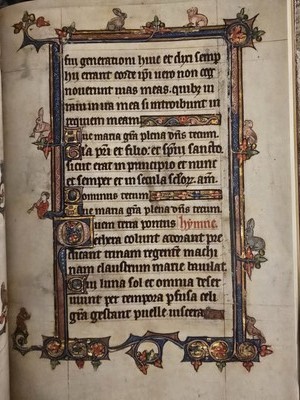 fui generationi huic et dixi semp
hii errant corde ipi uero non cog
nouerunt uias meas. quibz iu
raui in ira mea si introibunt in
requiem meam.
Aue maria gra plena dns tecum.
Gla pri et filio: et spui sancto
sicut erat in principio et nunc
et semper et in secula seclor. am.
Dominus tecum.
Aue maria gra plena dns tecum.
Quem terra pontus hympne
ethera colunt adorant pre
dicant trinam regentem machi
nam claustrum marie baiulat.
Cui luna sol et omnia deser
uiunt per tempora pfusa celi
gra gestant puelle uiscera